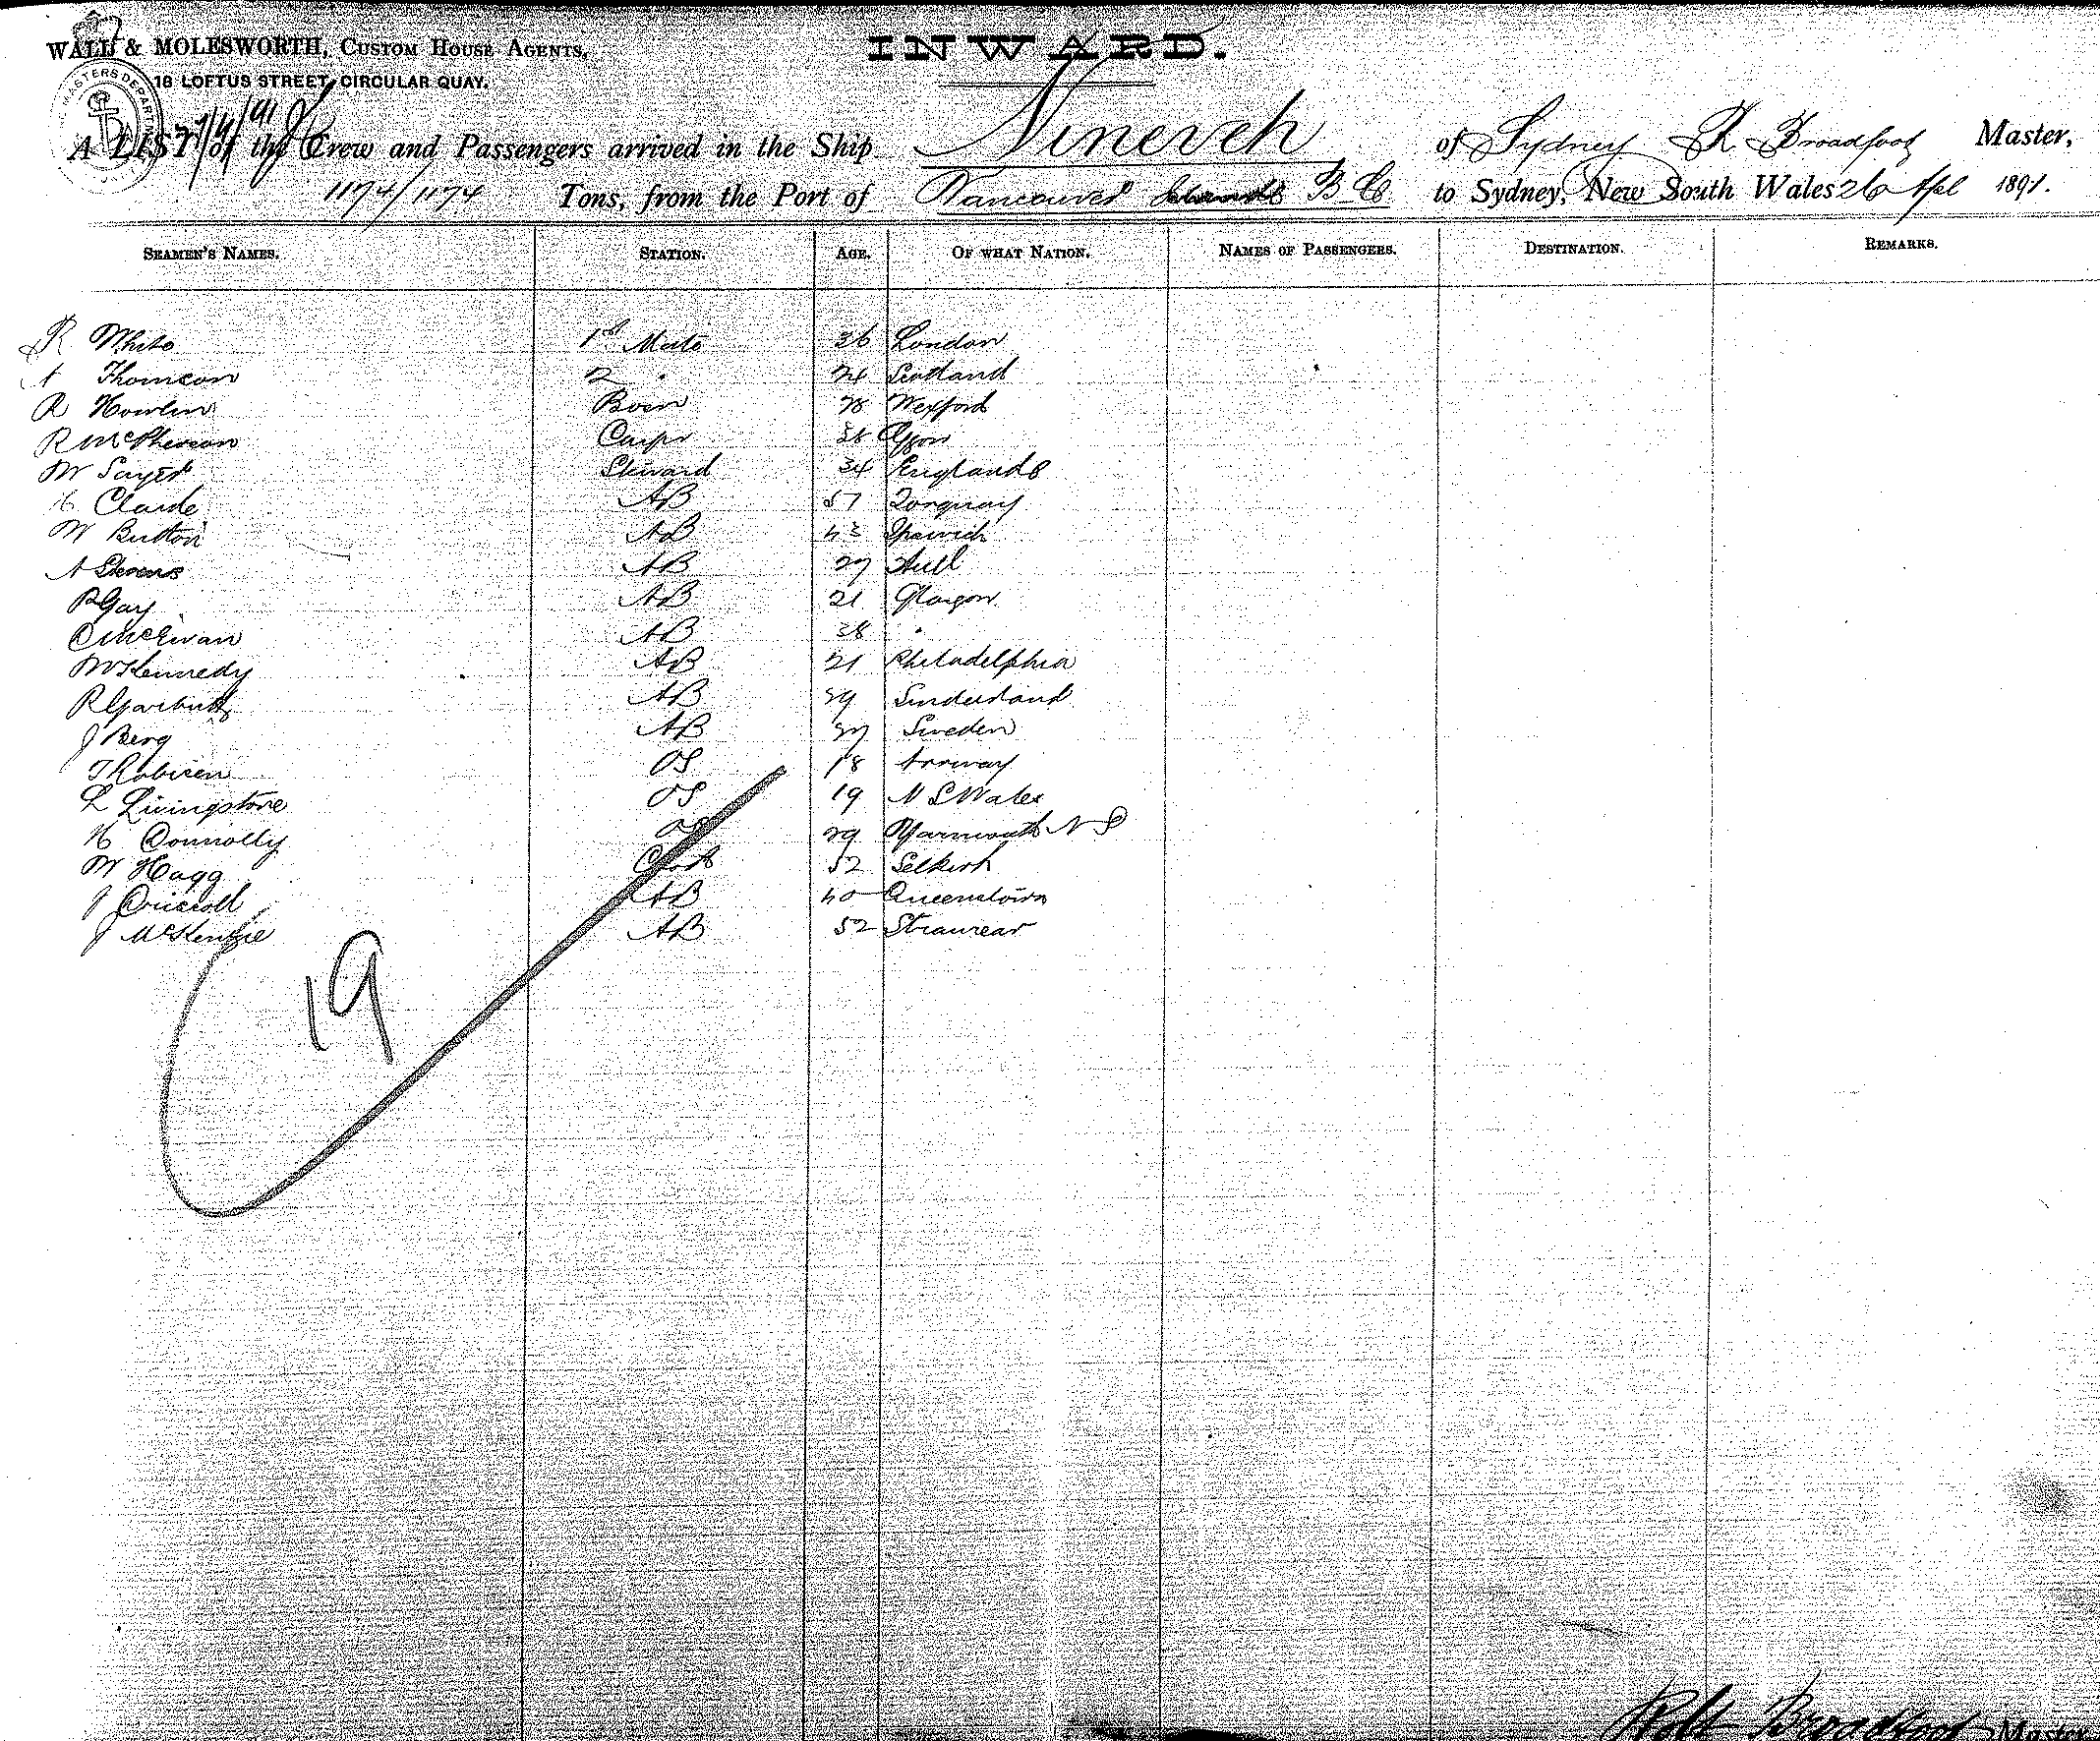 WALE & MOLESWORTH, CUSTOM HOUSE AGENTS,
18 LOFTUS STREET, CIRCULAR QUAY.
INWARD.
27/4/91
A LIST of the Crew and Passengers arrived in the Ship Nineveh of Sydney R Broadfoot Master,
1174/1174 Tons, from the Port of Vancouver B C to Sydney, New South Wales 26 Apl 1891.
SEAMEN'S NAMES. STATION. AGE. OF WHAT NATION. NAMES OF PASSENGERS. DESTINATION. REMARKS.
R White 1st Mate 36 London
A Thomson 2 " 24 Scotland
R Howlin Bosn 28 Wexford
R McPherson Carpr 38
W Sayer Steward 34 England
H Clarde AB 57 Torquay
W Button AB 43 Ipswich
A Stevens AB 27 Hull
P Gay AB 21 Glasgow
C McEwan AB 38 "
W Kennedy AB 21 Philadelphia
R Garbutt AB 29 Sunderland
J Berg AB 27 Sweden
T Robisen OS 18 Norway
L Livingstone OS 19 N S Wales
H Connolly OS 29 Yarmouth N S
W Hagg Cook 52 Selkirk
J Driscoll AB 40 Queenstown
J McKenzie AB 52 Stranrear
19
Robt Broadfoot Master